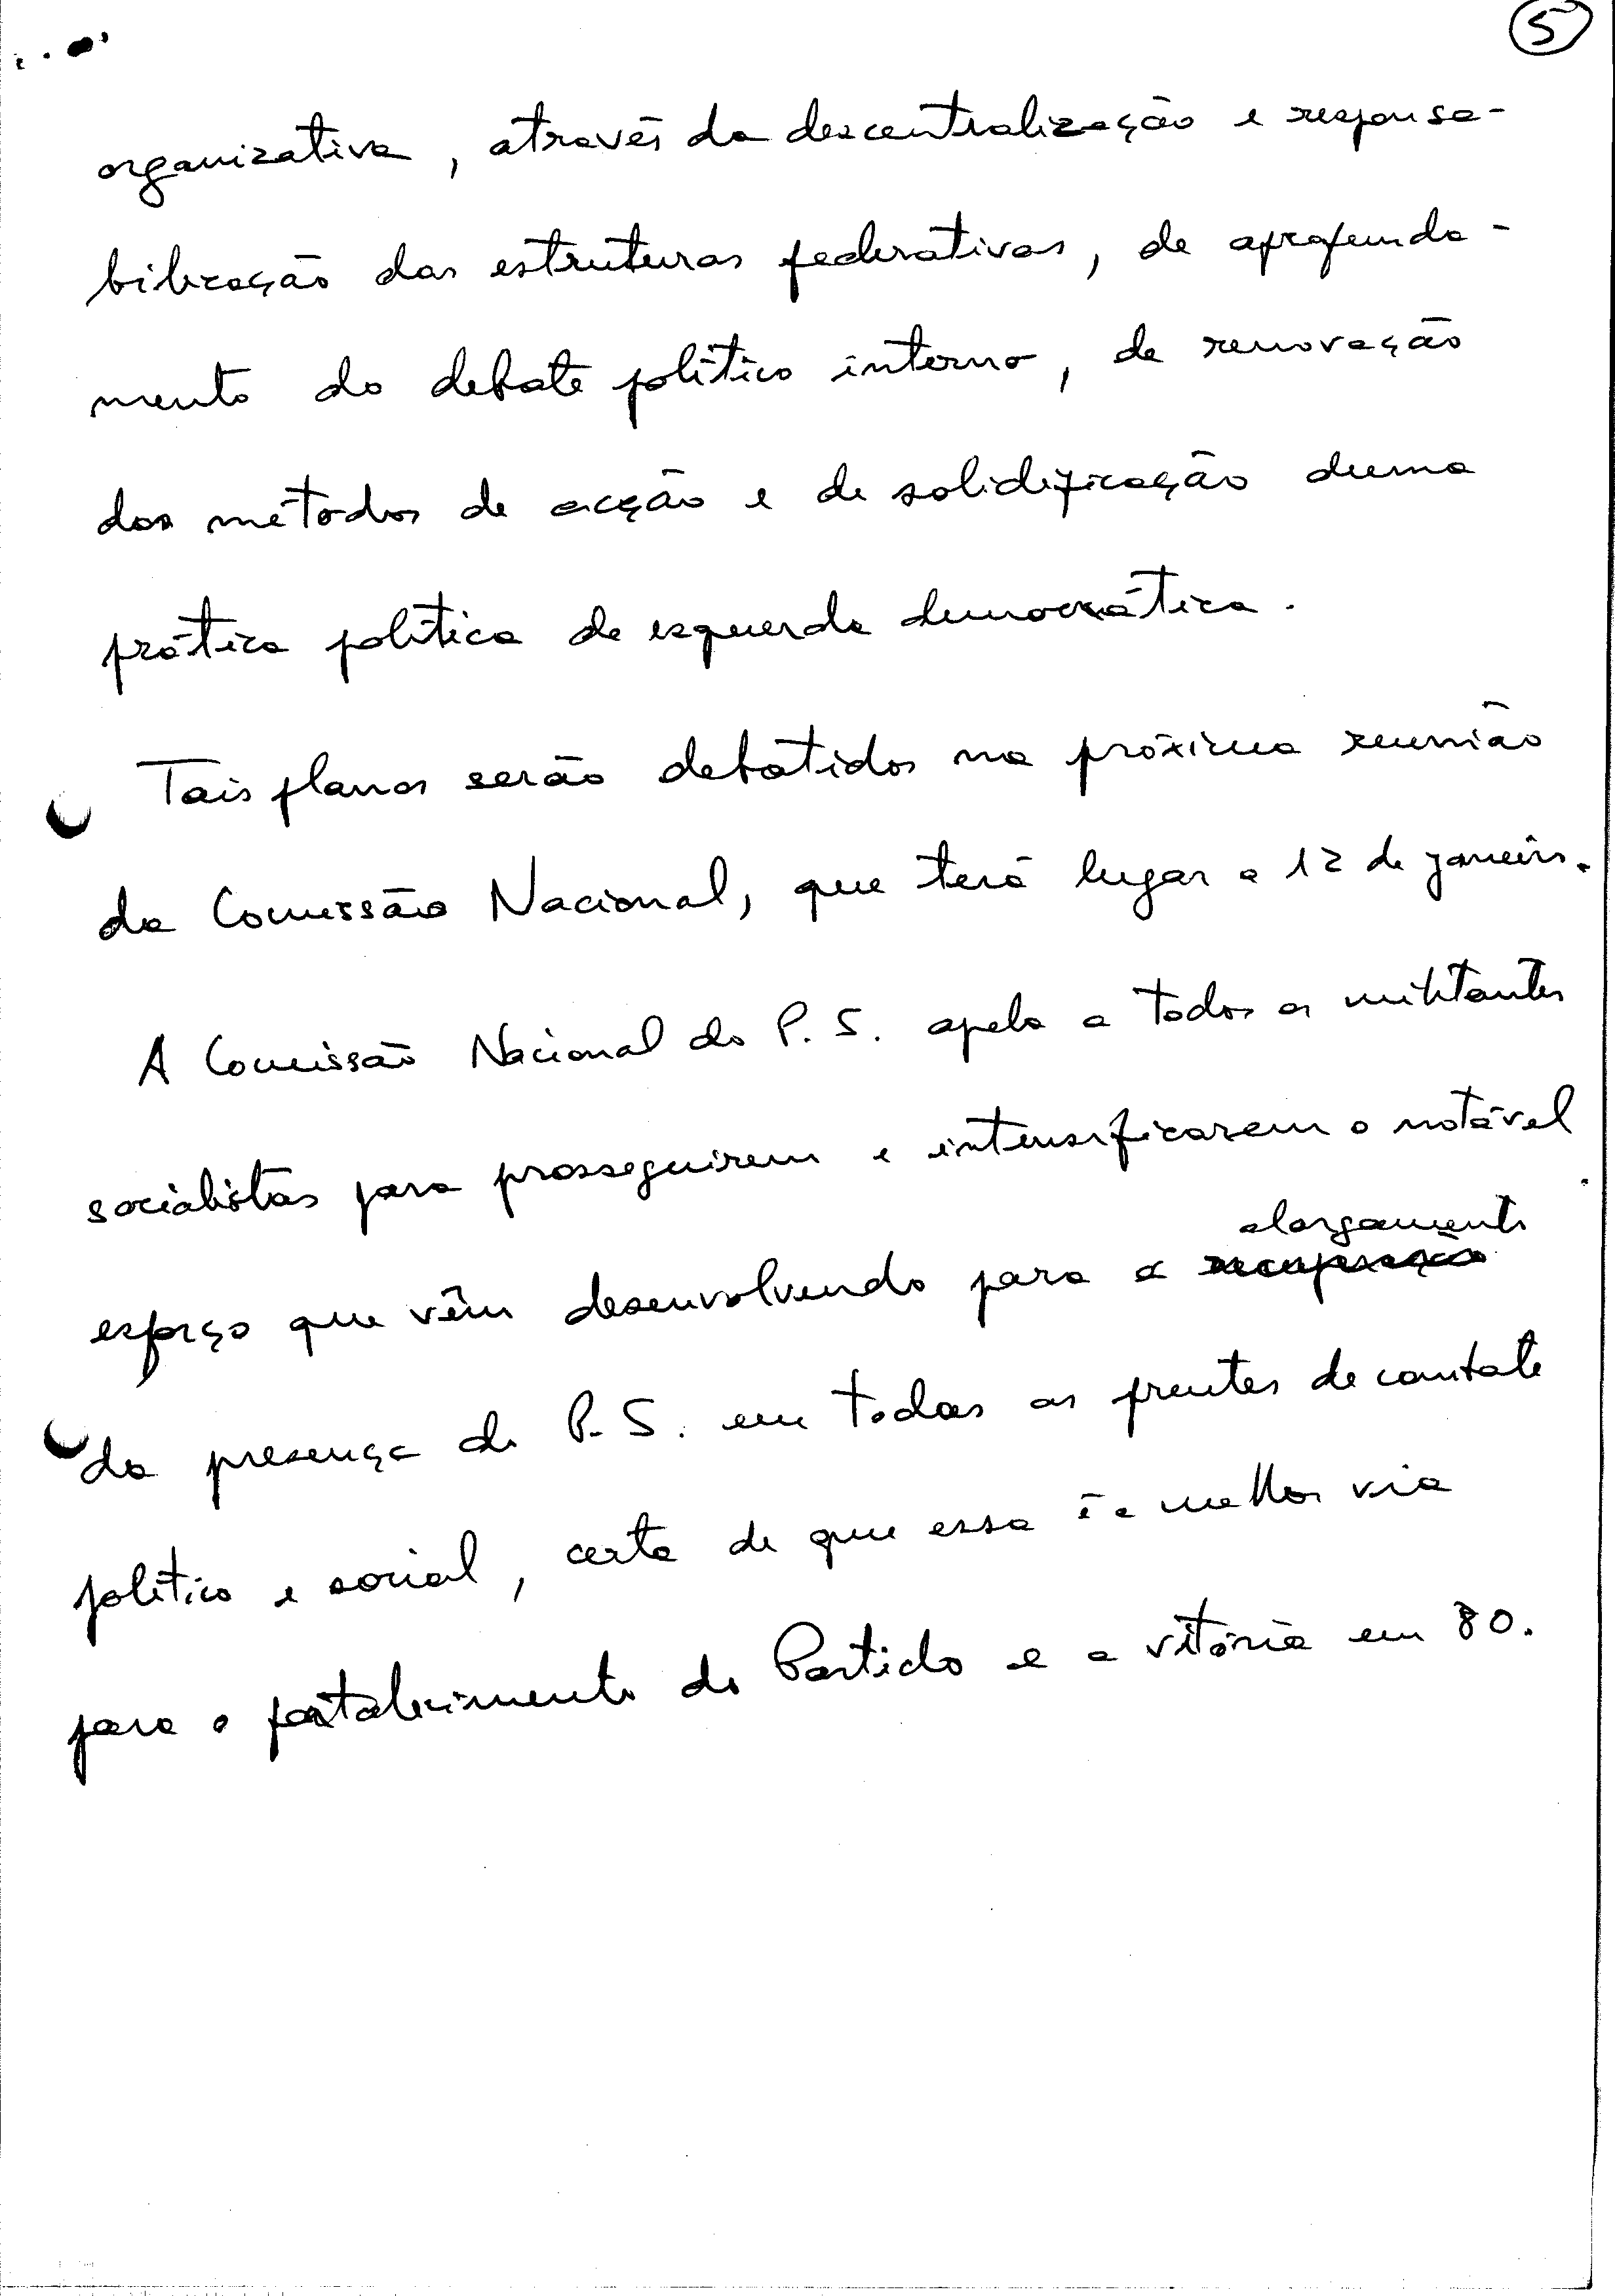 5
organizativa, através da descentralização e responsa-
bilização das estruturas federativas, de aprofunda-
mento do debate político interno, de renovação
dos métodos de acção e de solidificação duma
prática política de esquerda democrática.
Tais planos serão debatidos na próxima reunião
da Comissão Nacional, que terá lugar a 12 de janeiro.
A Comissão Nacional do P. S. apela a todos os militantes
socialistas para prosseguirem e intensificarem o notável
alargamento
esforço que vêm desenvolvendo para a recuperação
da presença do P. S. em todas as frentes de combate
político e social, certa de que essa é a melhor via
para o fortalecimento do Partido e a vitória em 80.